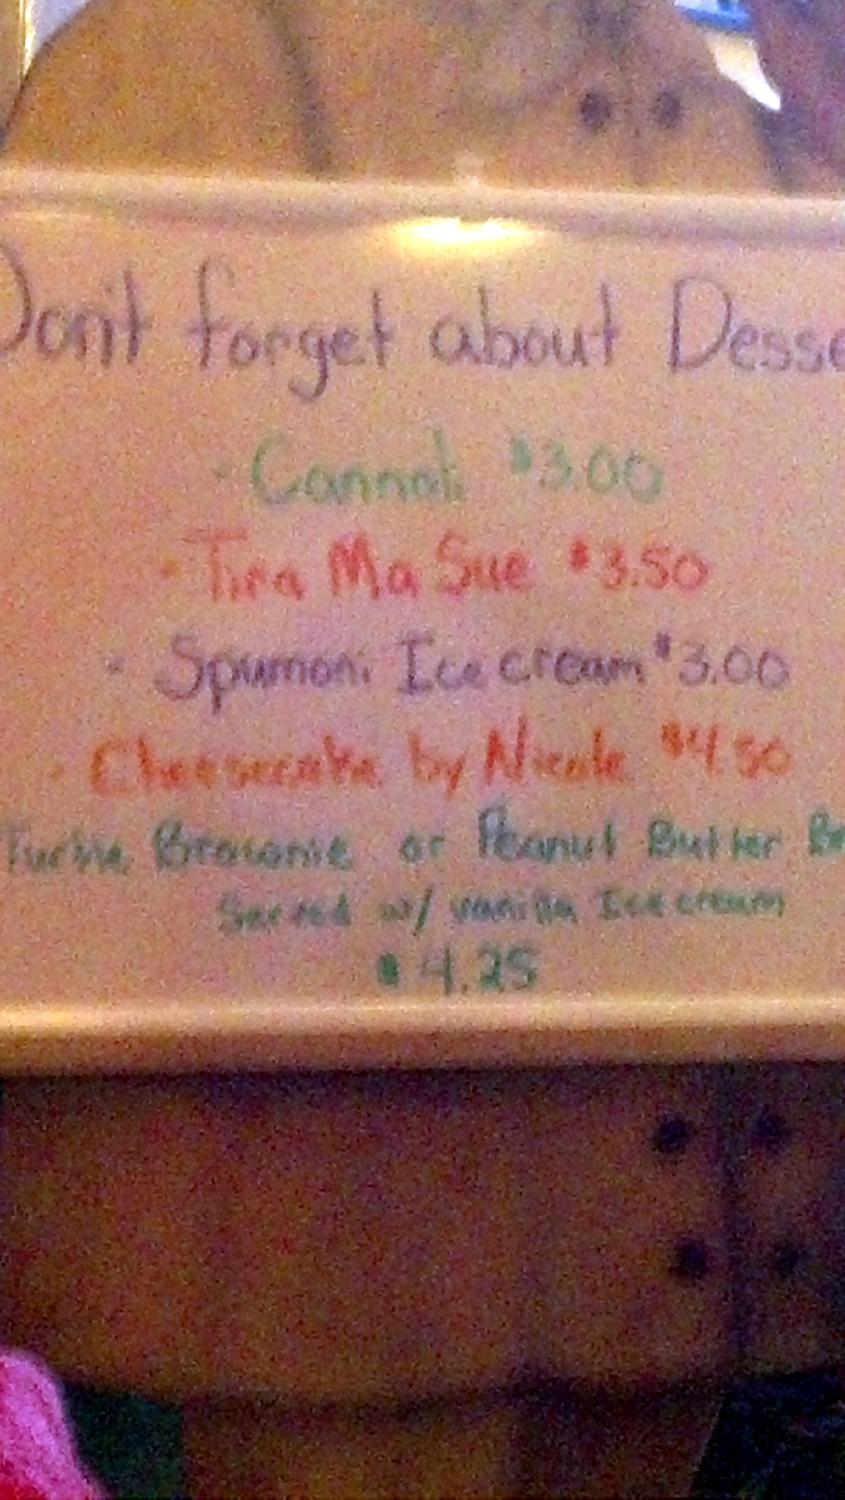 Don't forget about Desse
- Cannoli $3.00
- Tira Ma Sue $3.50
- Spumoni Ice cream $3.00
- Cheesecake by Nicole $4.50
Turtle Brownie or Peanut Butter Br
Served w/ vanilla Ice cream
$4.25